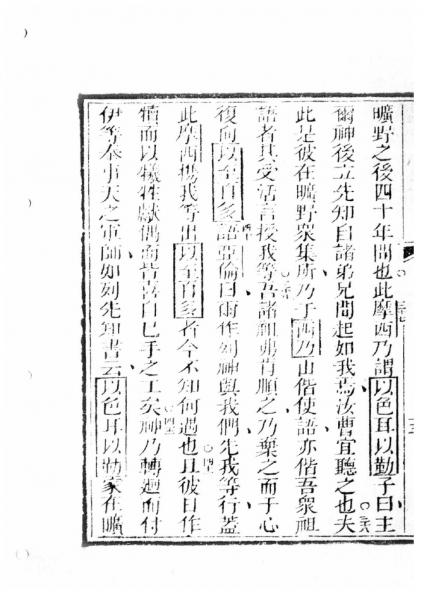 曠野之後四十年間也此摩西乃謂以色耳以勒子曰主
爾神後立先知自諸弟兄間起如我焉汝曹宜聽之也夫
此是彼在曠野衆集所乃于西乃山偕使語亦偕吾衆祖
語者其受活言授我等吾諸祖弗肯順之乃棄之而于心
復向以至百多語亞倫曰爾作刻神與我們先我等行蓋
此摩西攜我等出以至百多者今不知何遇也且彼日作
犢而以犧牲獻偶而皆喜自己手之工矣神乃轉廻而付
伊等奉事天之軍師如刻先知書云以色耳以勒家在曠